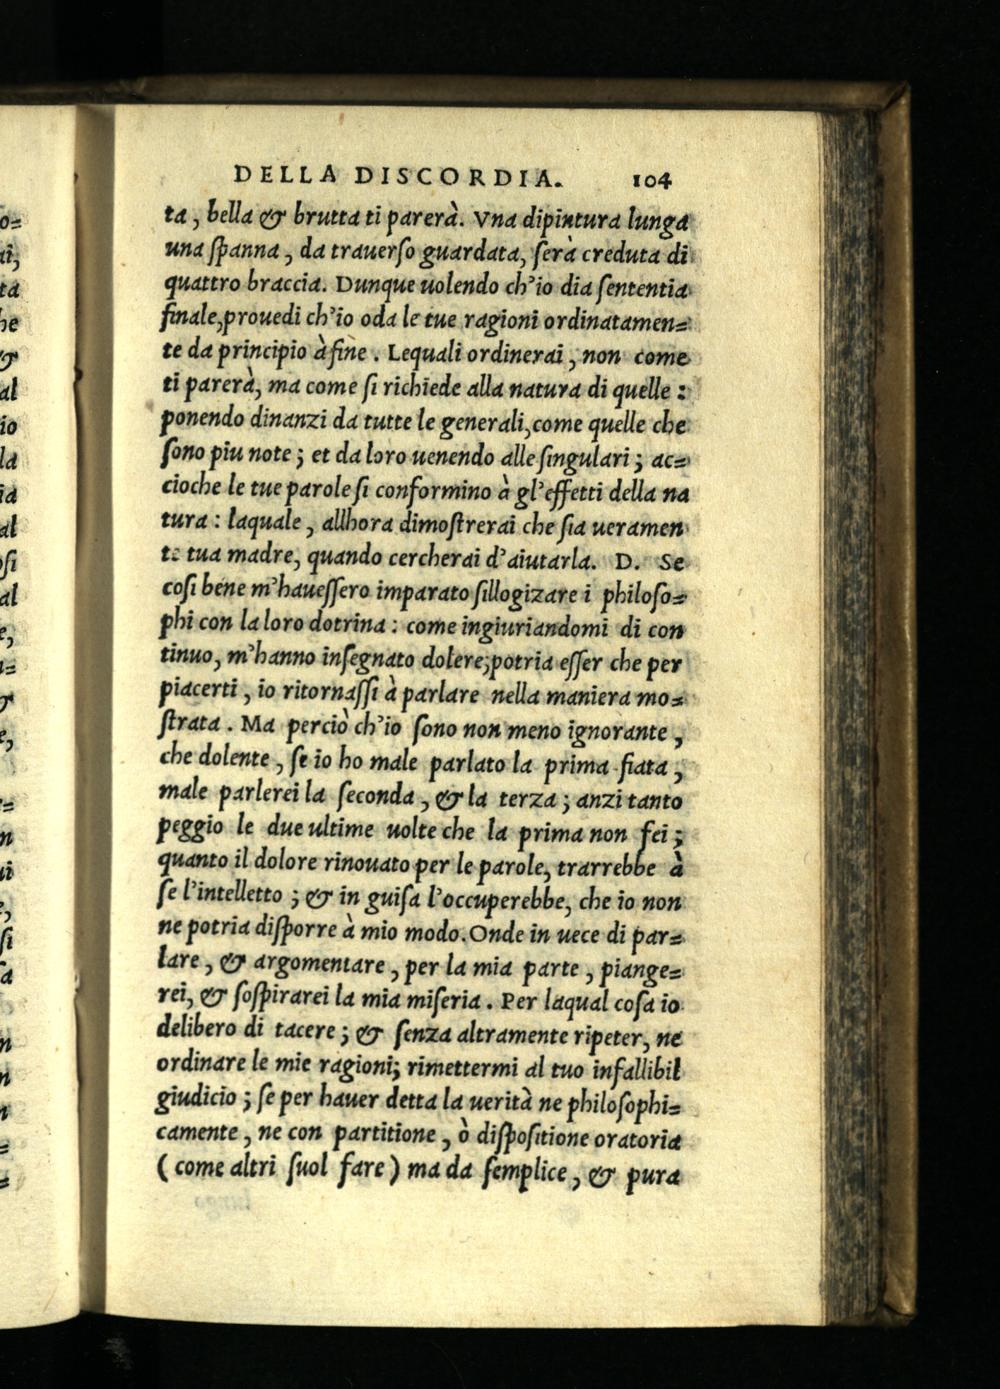 DELLA DISCORDIA. 104
ta, bella & brutta ti parerà. Vna dipintura lunga
una ſpanna, da trauerſo guardata, ſerà creduta di
quattro braccia. Dunque uolendo ch'io dia ſententia
finale, prouedi ch'io oda le tue ragioni ordinatamen=
te da principio à fine. Lequali ordinerai, non come
ti parerà, ma come ſi richiede alla natura di quelle:
ponendo dinanzi da tutte le generali, come quelle che
ſono piu note; et da loro uenendo alle ſingulari; ac=
cioche le tue parole ſi conformino à gl'effetti della na
tura: laquale, allhora dimoſtrerai che ſia ueramen
te tua madre, quando cercherai d'aiutarla. D. Se
coſi bene m'haueſſero imparato ſillogizare i philoſo=
phi con la loro dotrina: come ingiuriandomi di con
tinuo, m'hanno inſegnato dolere; potria eſſer che per
piacerti, io ritornaſſi à parlare nella maniera mo=
ſtrata. Ma perciò ch'io ſono non meno ignorante,
che dolente, ſe io ho male parlato la prima fiata,
male parlerei la ſeconda, & la terza; anzi tanto
peggio le due ultime uolte che la prima non fei;
quanto il dolore rinouato per le parole, trarrebbe à
ſe l'intelletto; & in guiſa l'occuperebbe, che io non
ne potria diſporre à mio modo. Onde in uece di par=
lare, & argomentare, per la mia parte, piange=
rei, & ſoſpirarei la mia miſeria. Per laqual coſa io
delibero di tacere; & ſenza altramente ripeter, ne
ordinare le mie ragioni; rimettermi al tuo infallibil
giudicio; ſe per hauer detta la uerità ne philoſophi=
camente, ne con partitione, ò diſpoſitione oratoria
( come altri ſuol fare ) ma da ſemplice, & pura